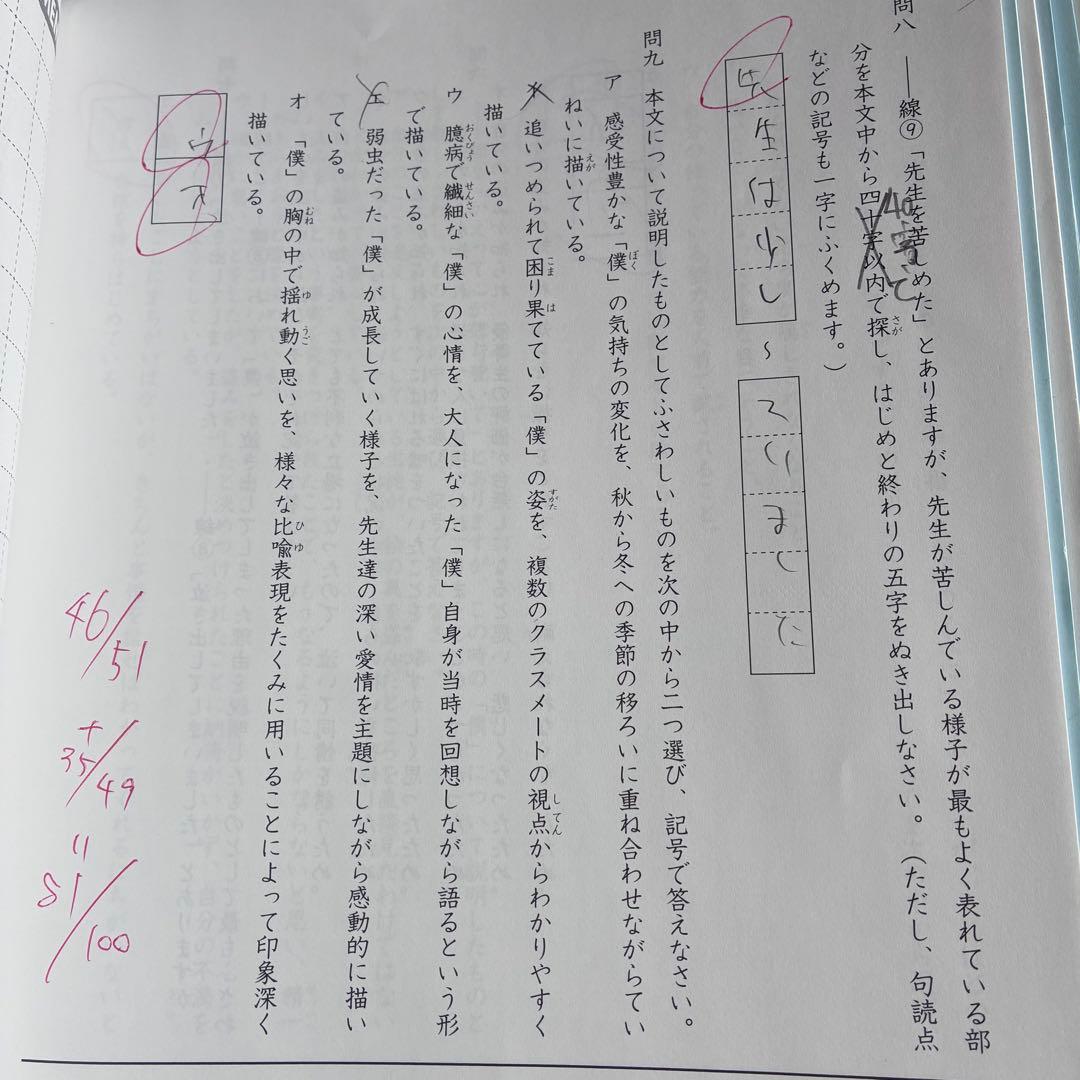 問八　――線⑨「先生を苦しめた」とありますが、先生が苦しんでいる様子が最もよく表れている部
分を本文中から四十字以内で探し、はじめと終わりの五字をぬき出しなさい。（ただし、句読点
などの記号も一字にふくめます。）
先生は少し～ていました
問九　本文について説明したものとしてふさわしいものを次の中から二つ選び、記号で答えなさい。
ア　感受性豊かな「僕」の気持ちの変化を、秋から冬への季節の移ろいに重ね合わせながらてい
ねいに描いている。
イ　追いつめられて困り果てている「僕」の姿を、複数のクラスメートの視点からわかりやすく
描いている。
ウ　臆病で繊細な「僕」の心情を、大人になった「僕」自身が当時を回想しながら語るという形
で描いている。
エ　弱虫だった「僕」が成長していく様子を、先生達の深い愛情を主題にしながら感動的に描い
ている。
オ　「僕」の胸の中で揺れ動く思いを、様々な比喩表現をたくみに用いることによって印象深く
描いている。
ウ
オ
46/51
+
35/49
=
81/100